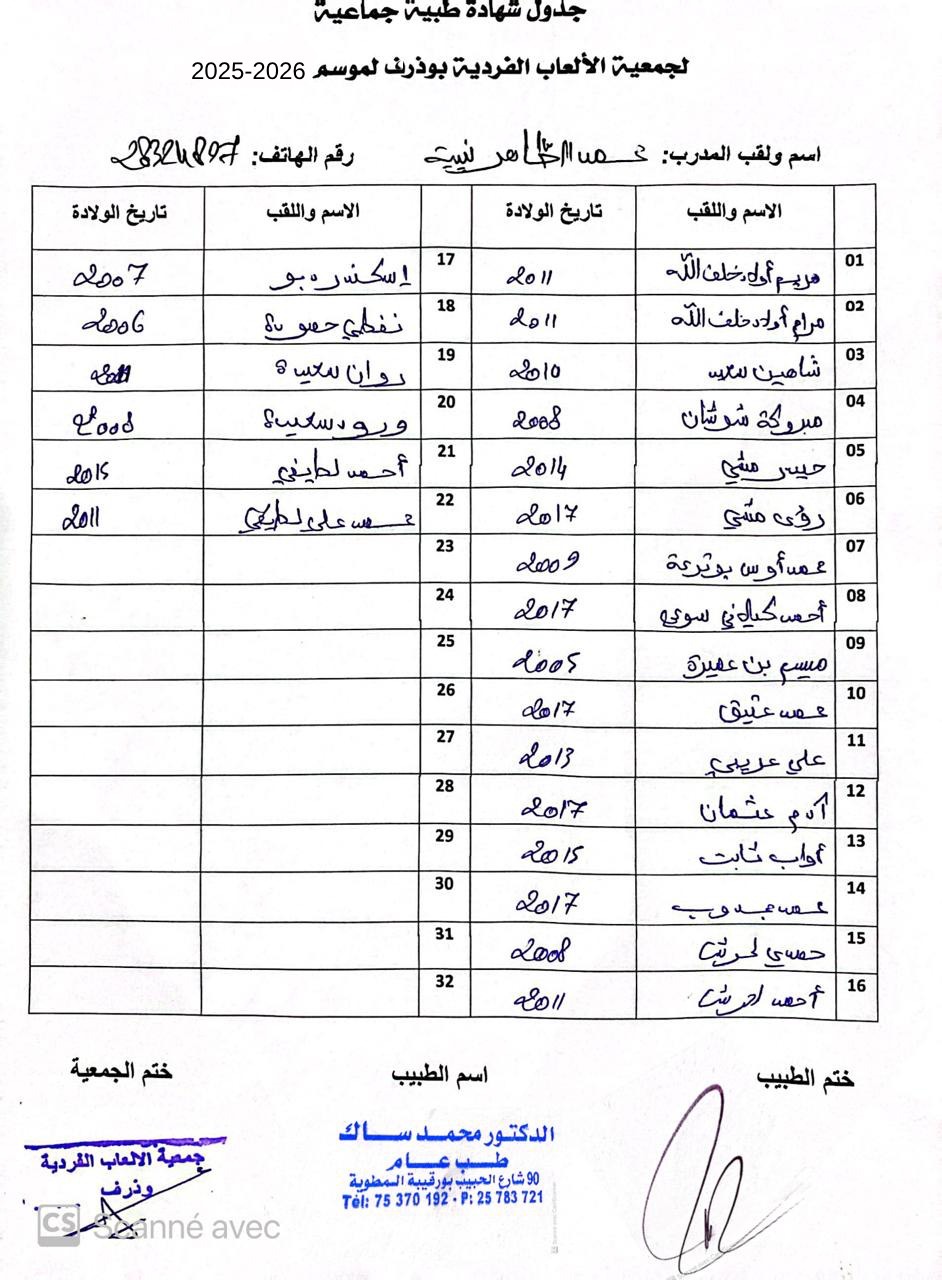 جدول شهادة طبية جماعية
لجمعية الألعاب الفردية بوذرف لموسم 2025-2026
اسم ولقب المدرب: محمد الطاهر نبية رقم الهاتف: 28324897
الاسم واللقب تاريخ الولادة الاسم واللقب تاريخ الولادة
01 مريم أولاد خلف الله 2011 17 إسكندر دبو 2007
02 مرام أولاد خلف الله 2011 18 نفطي حمودة 2006
03 شاهين سعيد 2010 19 روان سعيدة 2011
04 مبروكة شوشان 2008 20 ورود سعيدة 2008
05 حيدر مشي 2014 21 أحمد لطيفي 2015
06 رؤى مشي 2017 22 محمد علي لطيفي 2011
07 محمد أوس بوترعة 2009 23
08 أحمد كيلاني سوي 2017 24
09 ميسم بن عميرة 2005 25
10 محمد عتيق 2017 26
11 علي عريبي 2013 27
12 آدم عثمان 2017 28
13 أواب ثابت 2015 29
14 محمد مجدوب 2017 30
15 حمدي لحرش 2008 31
16 أحمد لحرش 2011 32
ختم الطبيب اسم الطبيب ختم الجمعية
الدكتور محمد ساك
طب عام
90 شارع الحبيب بورقيبة المطوية
Tél: 75 370 192 - P: 25 783 721
جمعية الألعاب الفردية
وذرف
CS Scanné avec